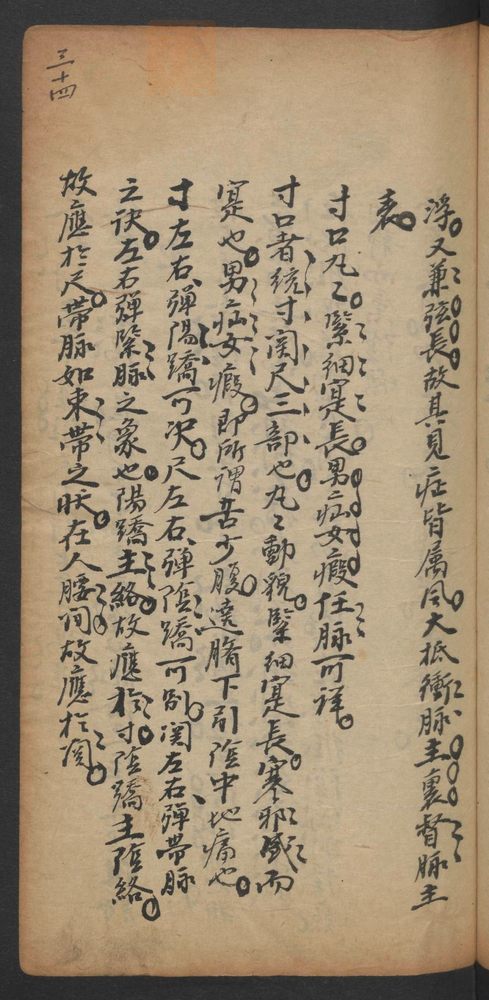 三十四
浮。又兼弦長。故其見症皆屬風。大抵衝脈主裏。督脈主
表。
寸口丸丸。緊細寔長。男疝女瘕。任脈可詳。
寸口者。統寸関尺三部也。丸丸動貌。緊細寔長。寒邪盛而
寔也。男疝女瘕。即所謂苦少腹遶臍下引陰中地痛也。
寸左右彈。陽蹻可决。尺左右彈。陰蹻可別。関左右彈。帶脈
之訣。左右彈緊脈之象也。陽蹻主絡。故應於寸。陰蹻主陰絡。
故應於尺。帶脈如束帶之狀。在人腰间。故應於関。